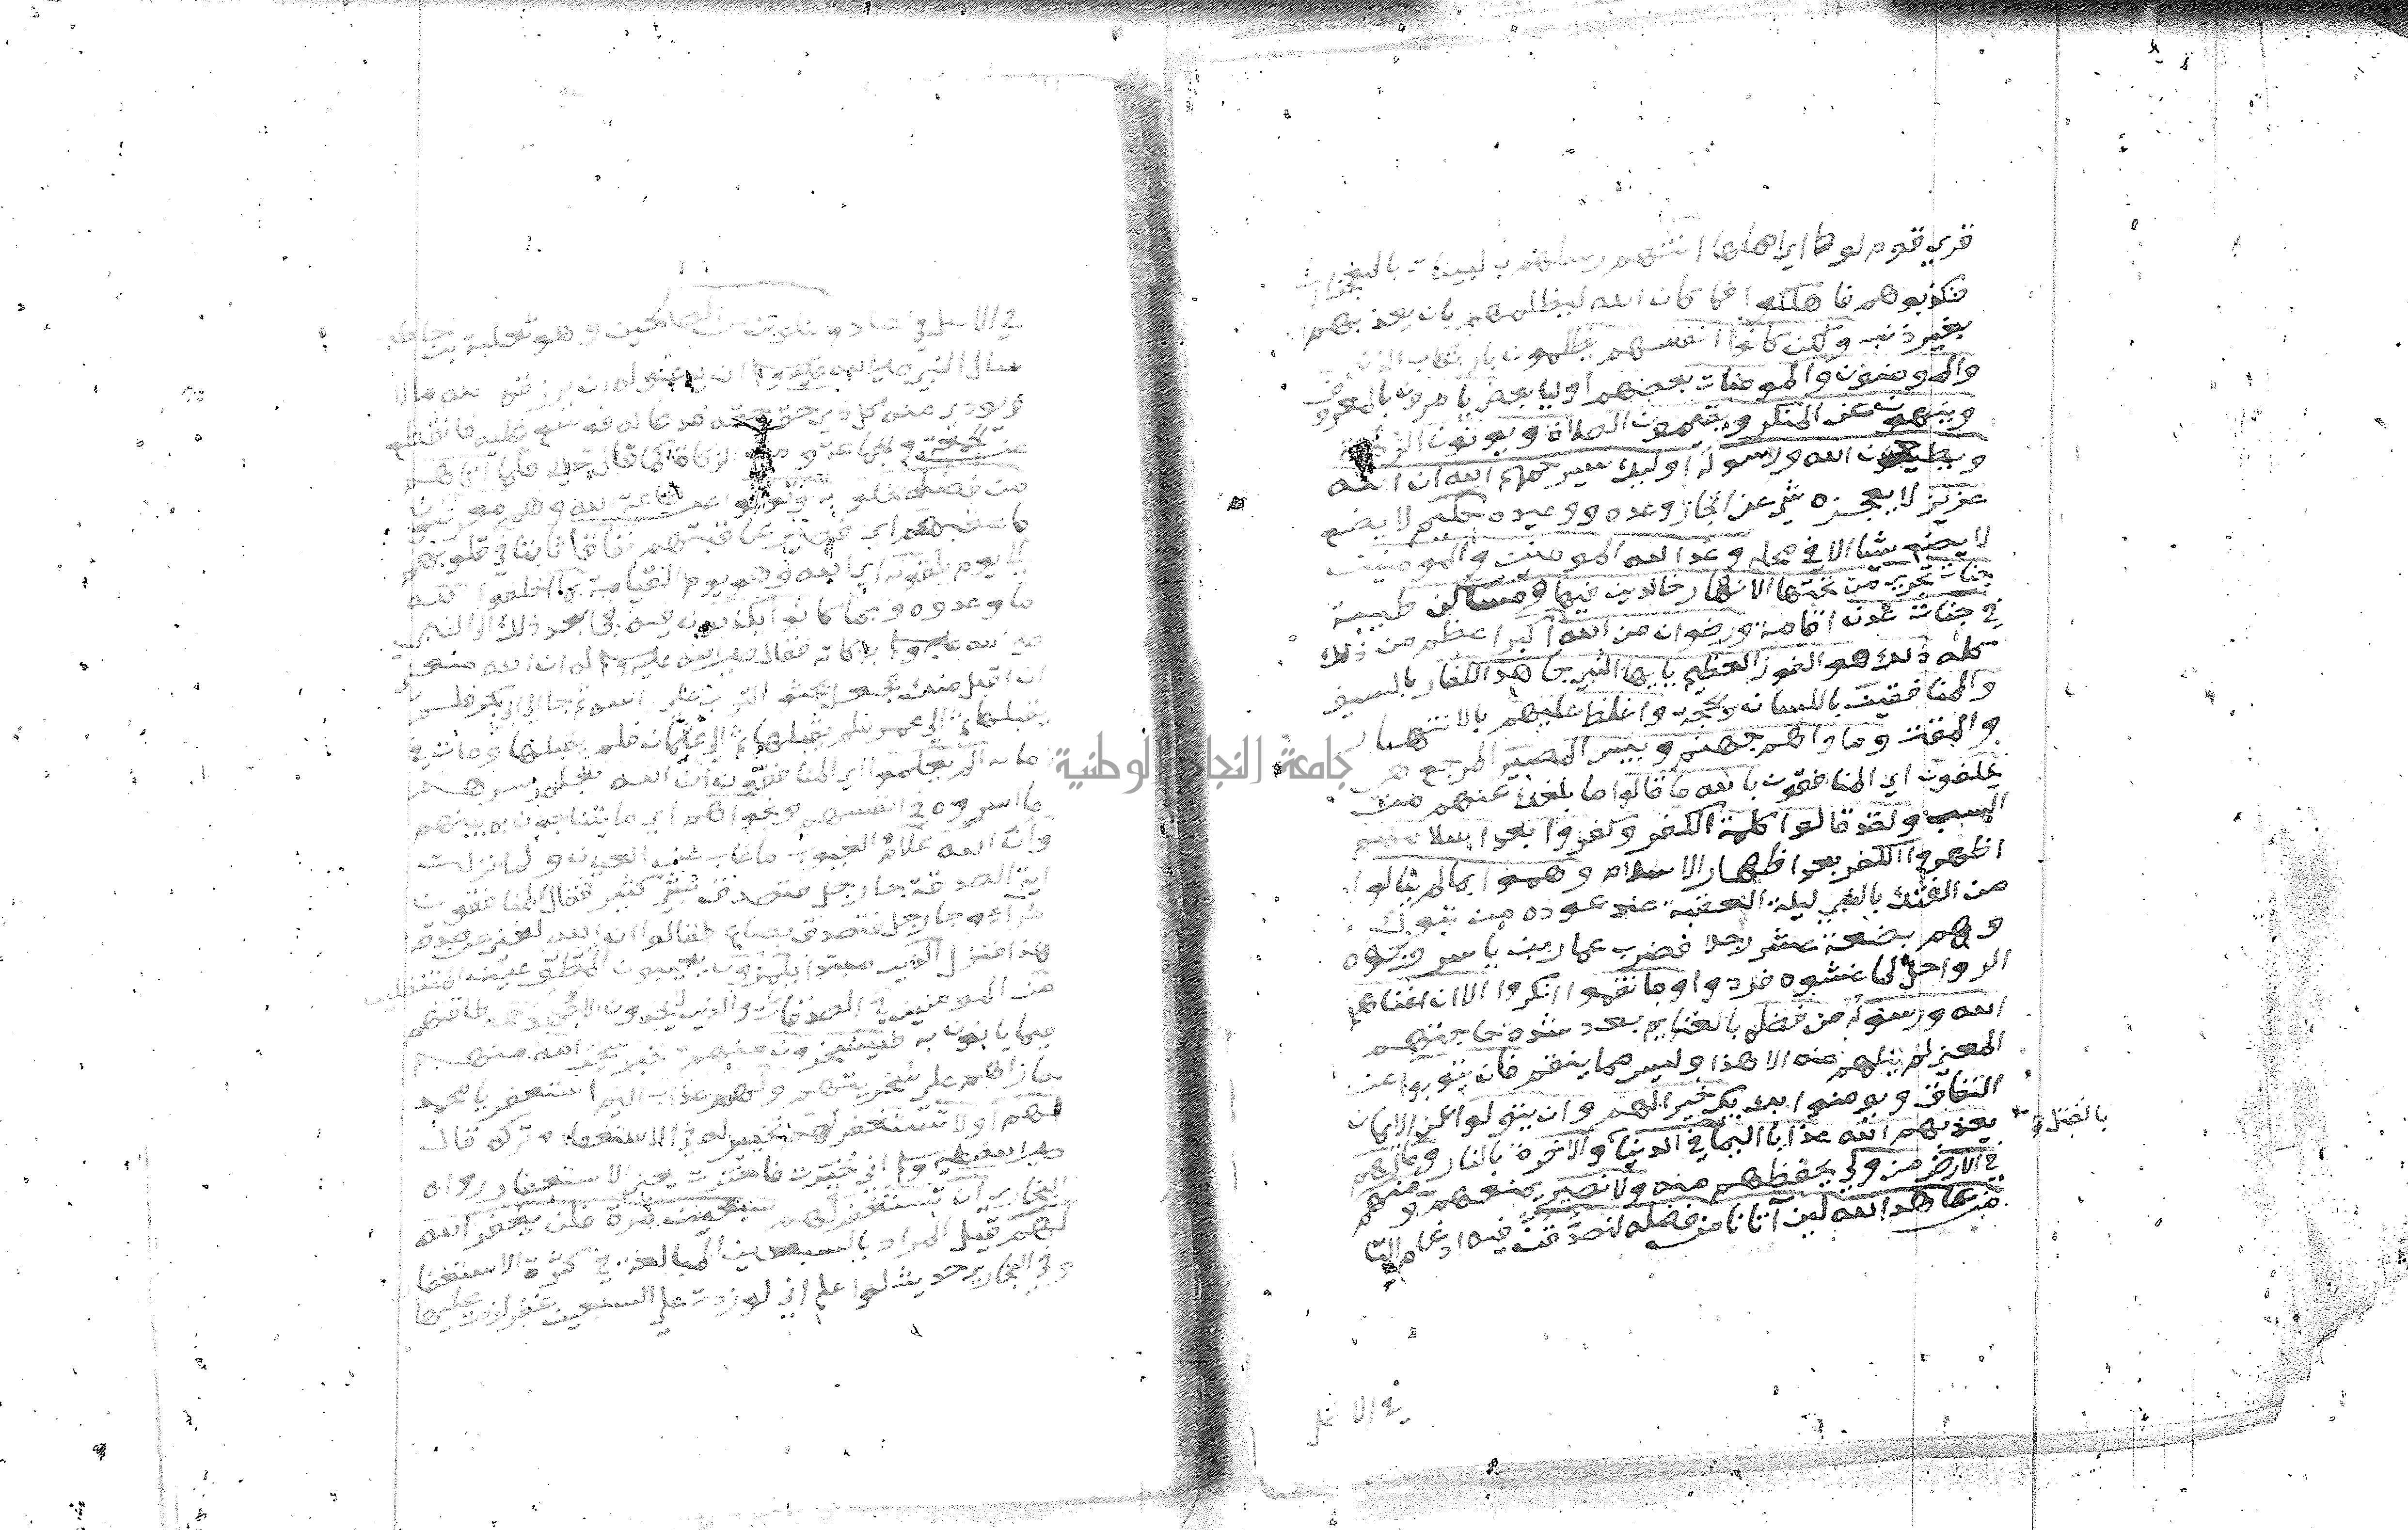 قري قوم لوط اي اهلها اتتهم رسلهم بالبينات بالمعجزات
فكذبوهم فاهلكوا فما كان الله ليظلمهم بان يعذبهم
بغير ذنب ولكن كانوا انفسهم يظلمون بارتكاب الذنب
والمومنون والمومنات بعضهم اوليا بعض يامرون بالمعروف
وينهون عن المنكر ويقيمون الصلاة ويوتون الزكاة
ويطيعون الله ورسوله اوليك سيرحمهم الله ان الله
عزيز لا يعجزه شي عن انجاز وعده ووعيده حكيم لا يضع
لا يضع شيا الا في محله وعد الله المومنين والمومنات
جنات تجري من تحتها الانهار خالدين فيها ومساكن طيبة
في جنات عدن اقامة ورضوان من الله اكبر اعظم من ذلك
كله ذلك هو الفوز العظيم يايها النبي جاهد الكفار بالسيف
والمنافقين باللسان والحجة واغلظ عليهم بالانتهار
والمقت وماواهم جهنم وبيس المصير المرجع هي
يحلفون اي المنافقون بالله ما قالوا ما بلغك عنهم من
السب ولقد قالوا كلمة الكفر وكفروا بعد اسلامهم
اظهروا الكفر بعد اظهار الاسلام وهموا بما لم ينالوا
من الفتك بالنبي ليلة العقبة عند عوده من تبوك
وهم بضعة عشر رجلا فضرب عمار بن ياسر وجوه
الرواحل لما غشوه فردوا وما نقموا انكروا الا ان اغناهم
الله ورسوله من فضله بالغنايم بعد شدة حاجتهم
المعني لم ينلهم منه الا هذا وليس مما ينقم فان يتوبوا عن
النفاق ويومنوا بك يك خيرا لهم وان يتولوا عن الايمان
يعذبهم الله عذابا اليما في الدنيا والاخرة بالنار وما لهم
بالقتل
في الارض من ولي يحفظهم منه ولا نصير يمنعهم ومنهم
من عاهد الله لين آتانا من فضله لنصدقن فيه ادغام التا
في الاصل
في الاصل في الصاد ولنكونن من الصالحين وهو ثعلبة بن حاطب
سال النبي صلي الله عليه وسلم ان يدعو له ان يرزقه الله مالا
ويودي منه كل ذي حق حقه فدعا له فوسع عليه فانقطع
عن الجمعة والجماعة ومنع الزكاة كما قال تعالي فلما آتاهم
من فضله بخلوا به وتولوا عن طاعة الله وهم معرضون
فاعقبهم اي فصير عاقبتهم نفاقا ثابتا في قلوبهم
الي يوم يلقونه اي الله وهو يوم القيامة بما اخلفوا الله
ما وعدوه وبما كانوا يكذبون فيه فجا بعد ذلك الي النبي
صلي الله عليه وسلم بزكاته فقال صلي الله عليه وسلم له ان الله منعني
ان اقبل منك فجعل يحثو التراب علي راسه ثم جا الي ابي بكر فلم
يقبلها ثم الي عمر فلم يقبلها ثم الي عثمان فلم يقبلها ومات في
زمانه الم يعلموا اي المنافقون ان الله يعلم سرهم
ما اسروه في انفسهم ونجواهم اي ما يتناجون به بينهم
وان الله علام الغيوب ما غاب عن العيان ولما نزلت
اية الصدقة جا رجل فتصدق بشي كثير فقال المنافقون
مراء وجا رجل فتصدق بصاع فقالوا ان الله لغني عن صدقة
هذا فنزل الذين مبتدا يلمزون يعيبون المطوعين المتنفلين
من المومنين في الصدقات والذين لا يجدون الا جهدهم طاقتهم
فيما ياتون به فيسخرون منهم خبره سخر الله منهم
جازاهم علي سخريتهم ولهم عذاب اليم استغفر يا محمد
لهم او لا تستغفر لهم تخيير له في الاستغفار وتركه قال
صلي الله عليه وسلم اني خيرت فاخترت يعني الاستغفار رواه
البخاري ان تستغفر لهم سبعين مرة فلن يغفر الله
لهم قيل المراد بالسبعين المبالغة في كثرة الاستغفا
وفي البخاري حديث لو اعلم اني لو زدت علي السبعين غفر لزدت عليها
جامعة النجاح الوطنية